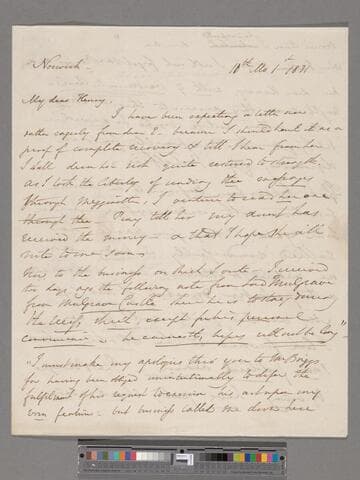 Norwich —
10th Mo 1st 1831
My dear Henry,
I have been expecting a letter now
rather eagerly from dear E. because I should hail it as a
proof of complete recovery & till I hear from her
I shall deem her not quite restored to strength.
As I took the liberty of sending the
through I venture to send her one
through thee. Pray tell her my aunt has
received the money — & that I hope she will
write to me soon.
Now to the business on which I write. I received
two days ago the following note from Lord Mulgrave
from Mulgrave Castle where he is to stay
the
he
"I must make my apologies thro' you to Mr Briggs
for having been obliged unintentionally to defer the
fulfilment of his request to exercise his art upon my
own features — but business called me down here